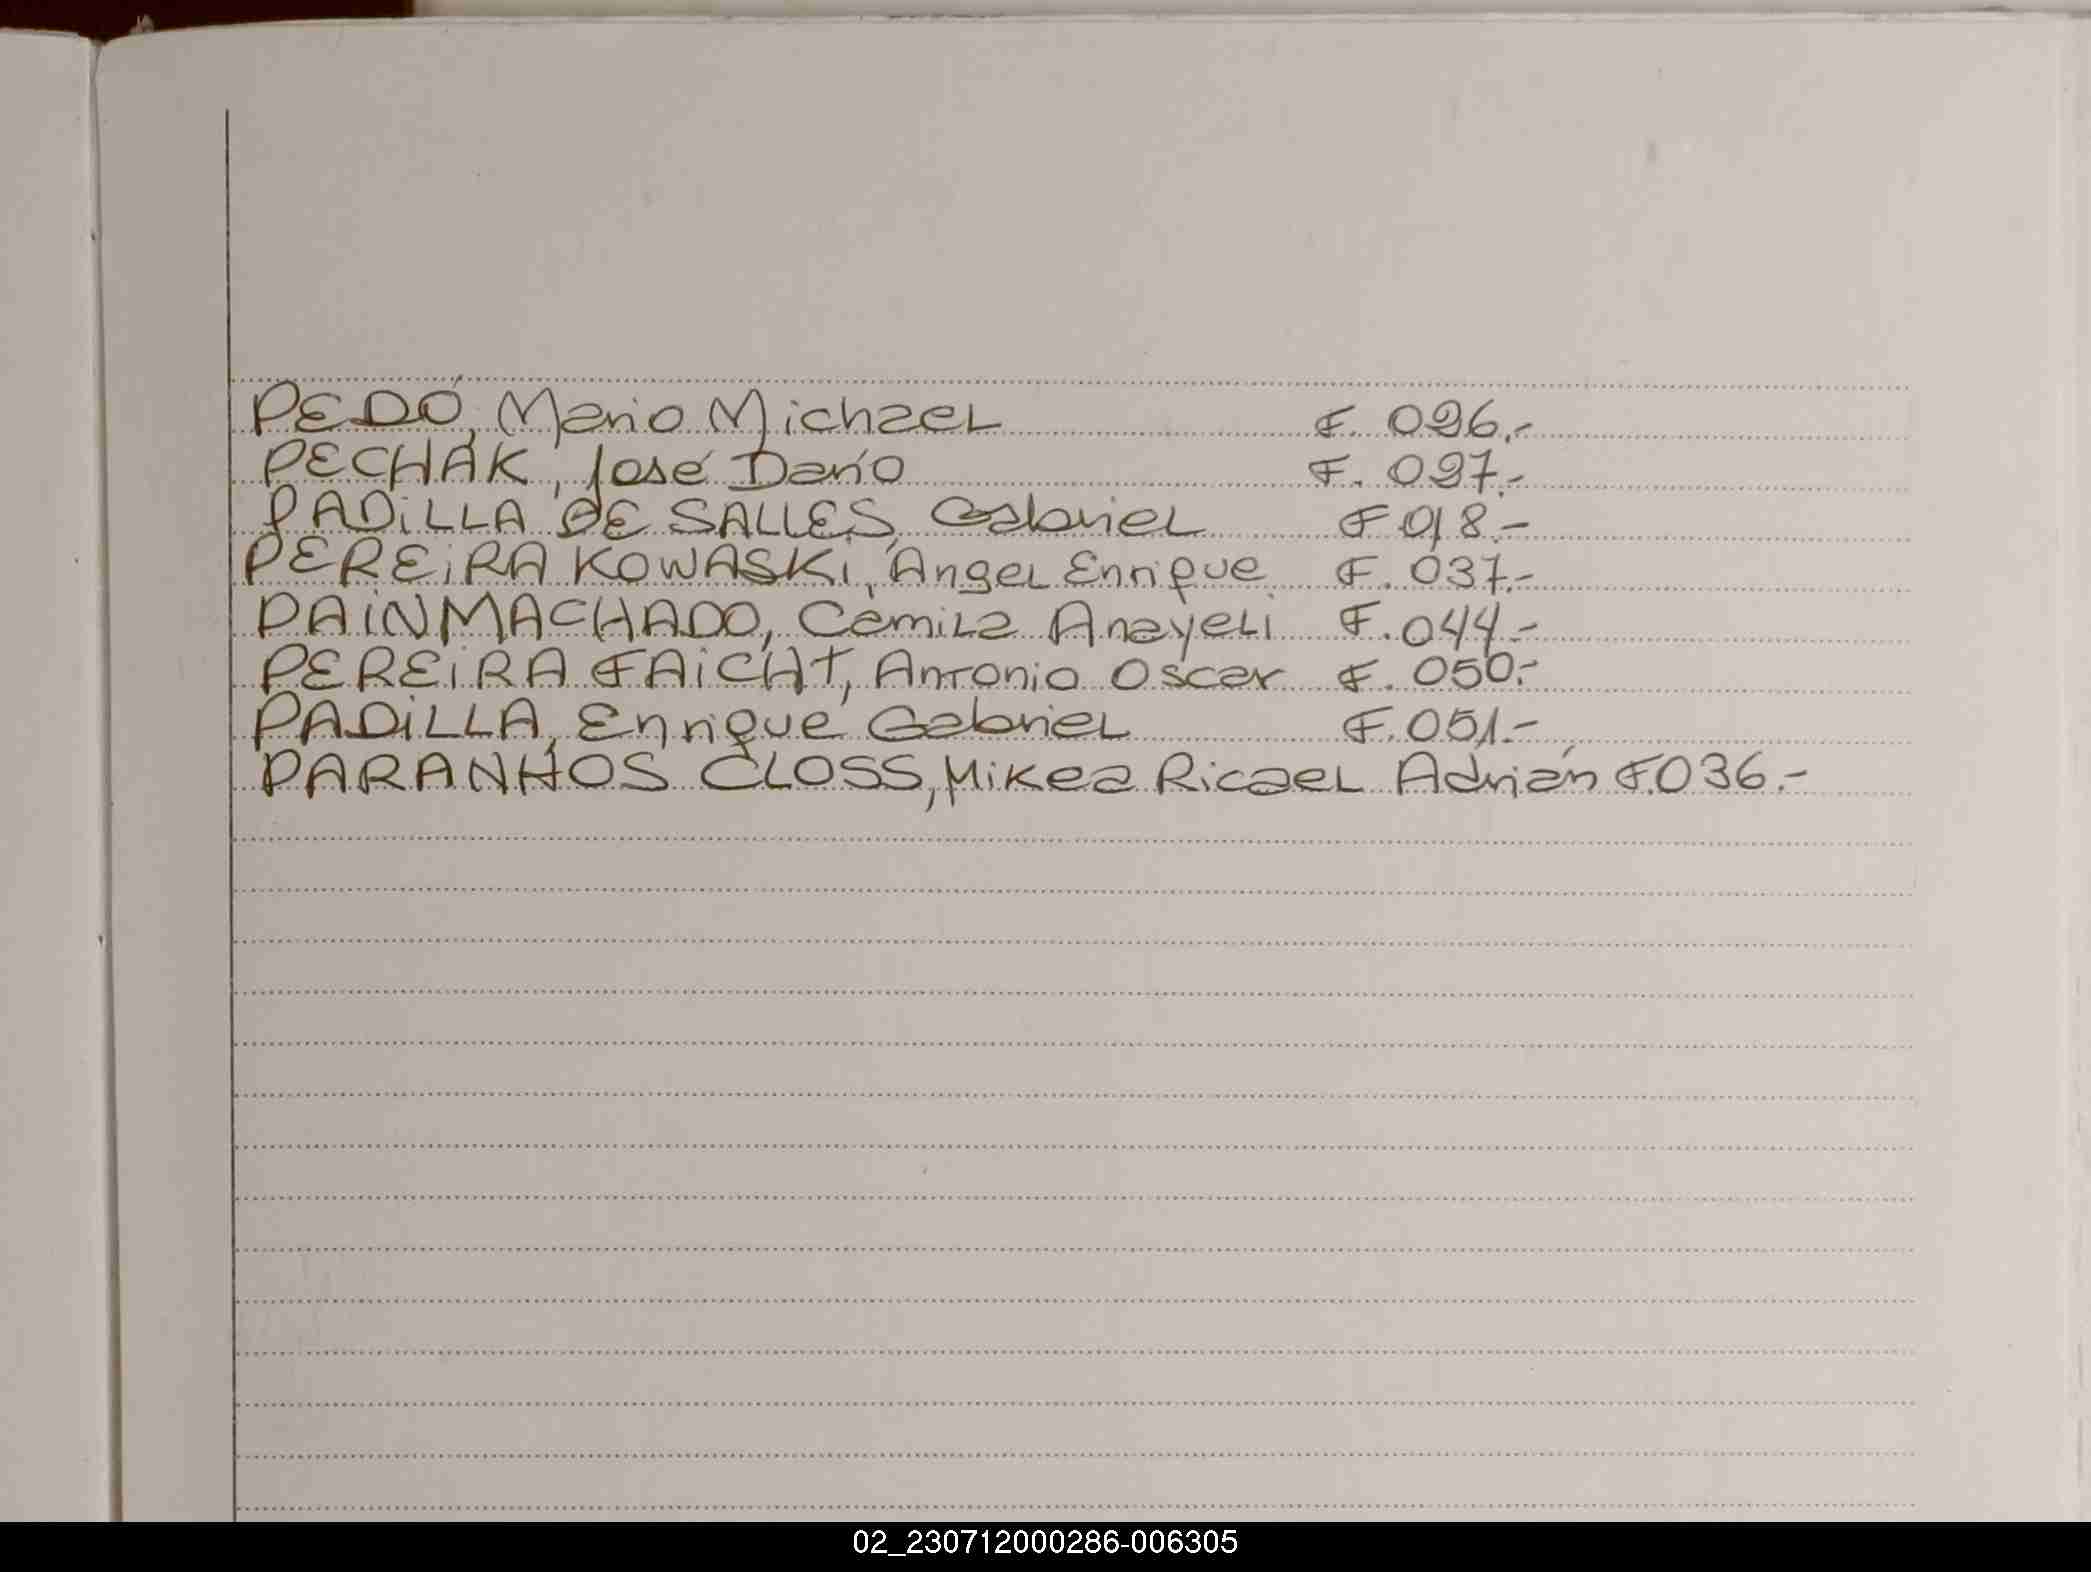 PEDÓ, Mario Michael F. 026.-
PECHAK, José Darío F. 027.-
PADILLA DE SALLES, Gabriel F 018.-
PEREIRA KOWASKI, Angel Enrique F. 037.-
PAIN MACHADO, Camila Anayeli F. 044.-
PEREIRA FAICHT, Antonio Oscar F. 050.-
PADILLA, Enrique Gabriel F. 051.-
PARANHOS CLOSS, Mikea Ricael Adrián F.036.-
02_230712000286-006305